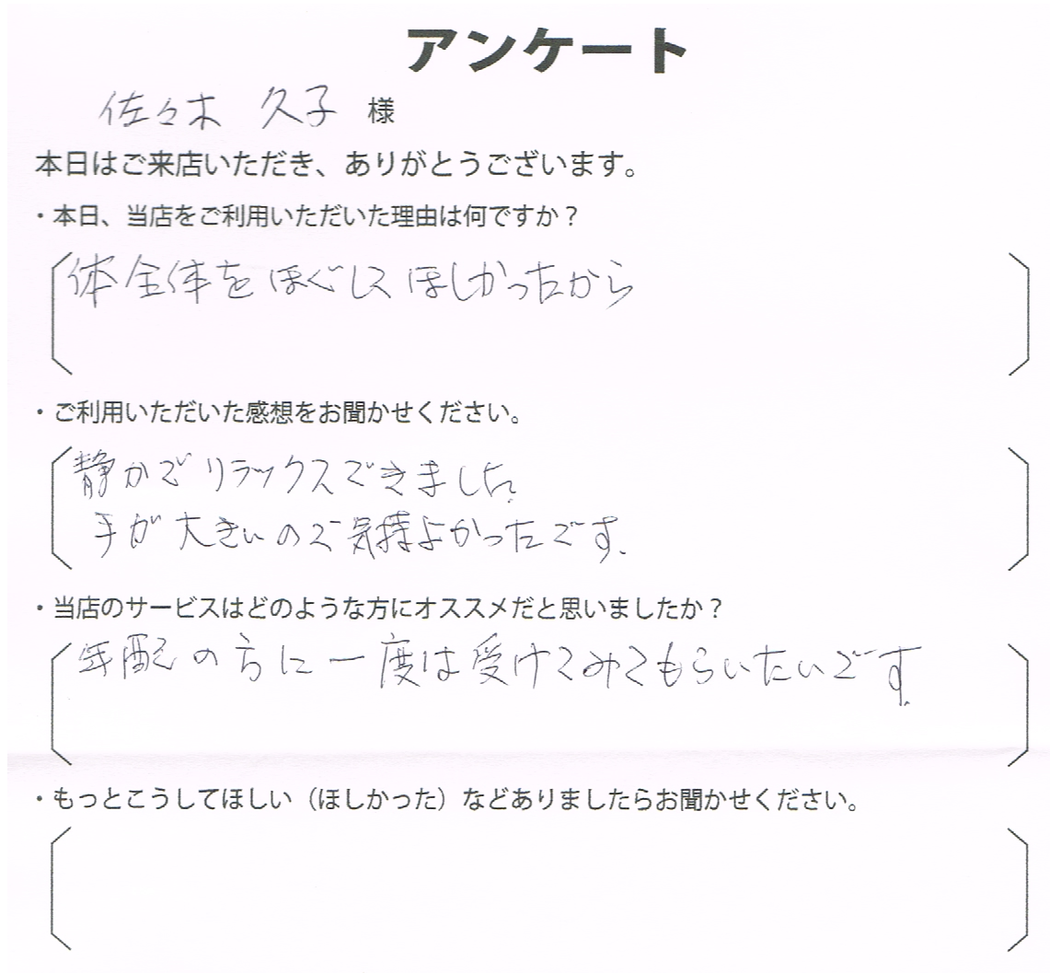 アンケート
佐々木 久子 様
本日はご来店いただき、ありがとうございます。
・本日、当店をご利用いただいた理由は何ですか？
体全体をほぐしてほしかったから
・ご利用いただいた感想をお聞かせください。
静かでリラックスできました。
手が大きいので気持よかったです.
・当店のサービスはどのような方にオススメだと思いましたか？
年配の方に一度は受けてみてもらいたいです.
・もっとこうしてほしい（ほしかった）などありましたらお聞かせください。